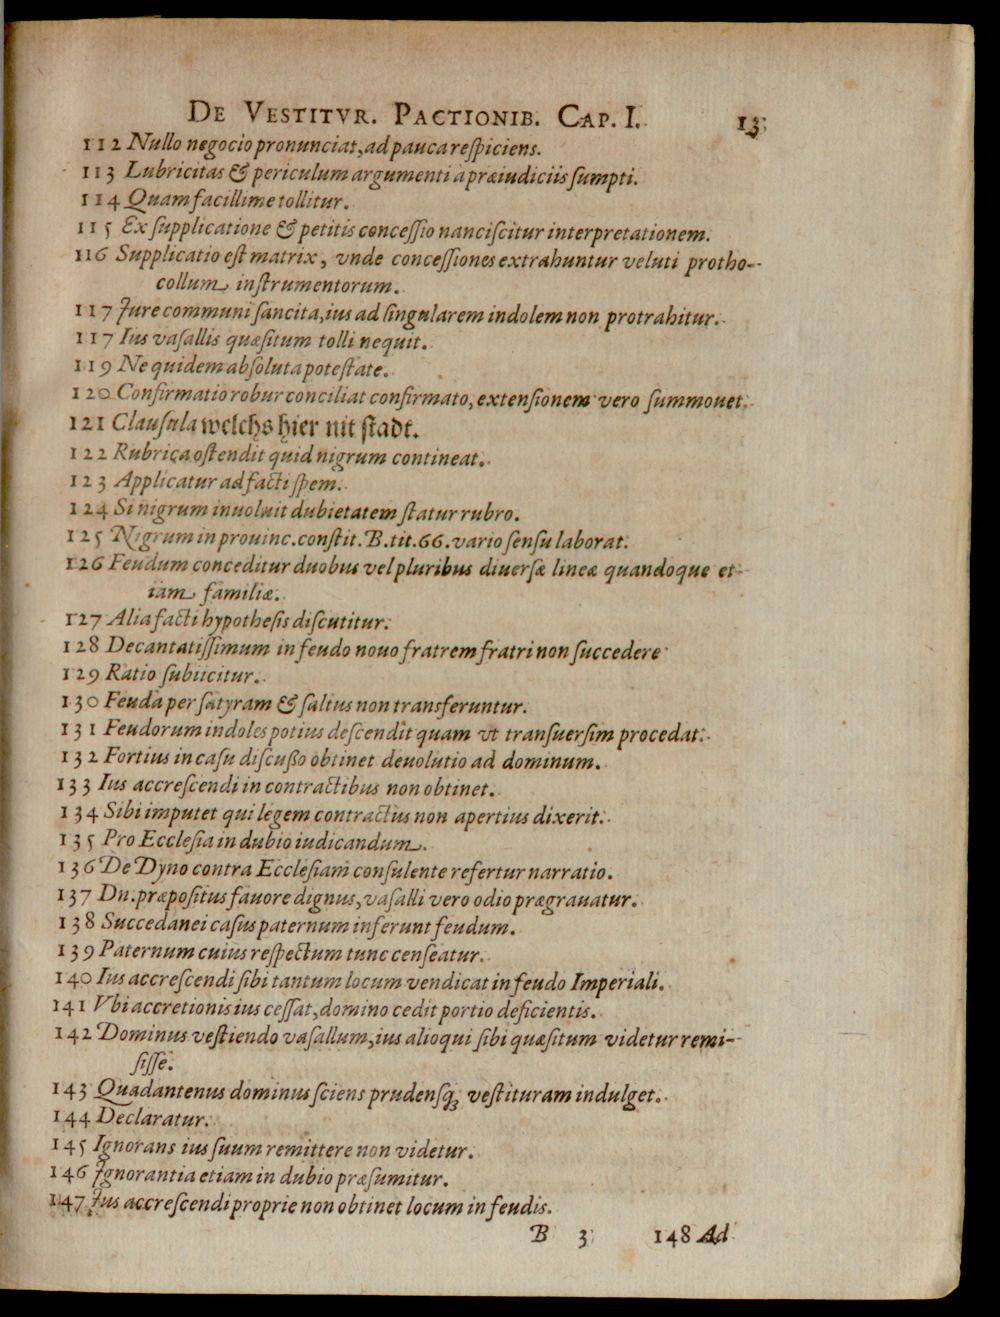 DE VESTITVR. PACTIONIB. CAP. I. 13
112 Nullo negocio pronunciat, ad pauca reſpiciens.
113 Lubricitas & periculum argumenti à præiudiciis ſumpti.
114 Quam facillime tollitur.
115 Ex ſupplicatione & petitis conceſſio nanciſcitur interpretationem.
116 Supplicatio eſt matrix, vnde conceſſiones extrahuntur veluti protho-
collum inſtrumentorum.
117 Jure communi ſancita, ius ad ſingularem indolem non protrahitur.
117 Ius vaſallis quæſitum tolli nequit.
119 Ne quidem abſoluta poteſtate.
120 Confirmatio robur conciliat confirmato, extenſionem vero ſummouet.
121 Clauſula welchs hier nit ſtadt.
122 Rubrica oſtendit quid nigrum contineat.
123 Applicatur ad facti ſpem.
124 Si nigrum inuoluit dubietatem ſtatur rubro.
125 Nigrum in prouinc. conſtit. B. tit. 66. vario ſenſu laborat.
126 Feudum conceditur duobus vel pluribus diuerſæ lineæ quandoque et-
iam familiæ.
127 Alia facti hypotheſis diſcutitur.
128 Decantatiſſimum in feudo nouo fratrem fratri non ſuccedere
129 Ratio ſubiicitur.
130 Feuda per ſatyram & ſaltus non transferuntur.
131 Feudorum indoles potius deſcendit quam vt transuerſim procedat.
132 Fortius in caſu diſcußo obtinet deuolutio ad dominum.
133 Ius accreſcendi in contractibus non obtinet.
134 Sibi imputet qui legem contractus non apertius dixerit.
135 Pro Eccleſia in dubio iudicandum.
136 De Dyno contra Eccleſiam conſulente refertur narratio.
137 Dn. præpoſitus fauore dignus, vaſalli vero odio prægrauatur.
138 Succedanei caſus paternum inferunt feudum.
139 Paternum cuius reſpectum tunc cenſeatur.
140 Ius accreſcendi ſibi tantum locum vendicat in feudo Imperiali.
141 Vbi accretionis ius ceſſat, domino cedit portio deficientis.
142 Dominus veſtiendo vaſallum, ius alioqui ſibi quæſitum videtur remi-
ſiſſe.
143 Quadantenus dominus ſciens prudensq́ꝫ veſtituram indulget.
144 Declaratur.
145 Ignorans ius ſuum remittere non videtur.
146 Jgnorantia etiam in dubio præſumitur.
147 Jus accreſcendi proprie non obtinet locum in feudis.
B 3 148 Ad